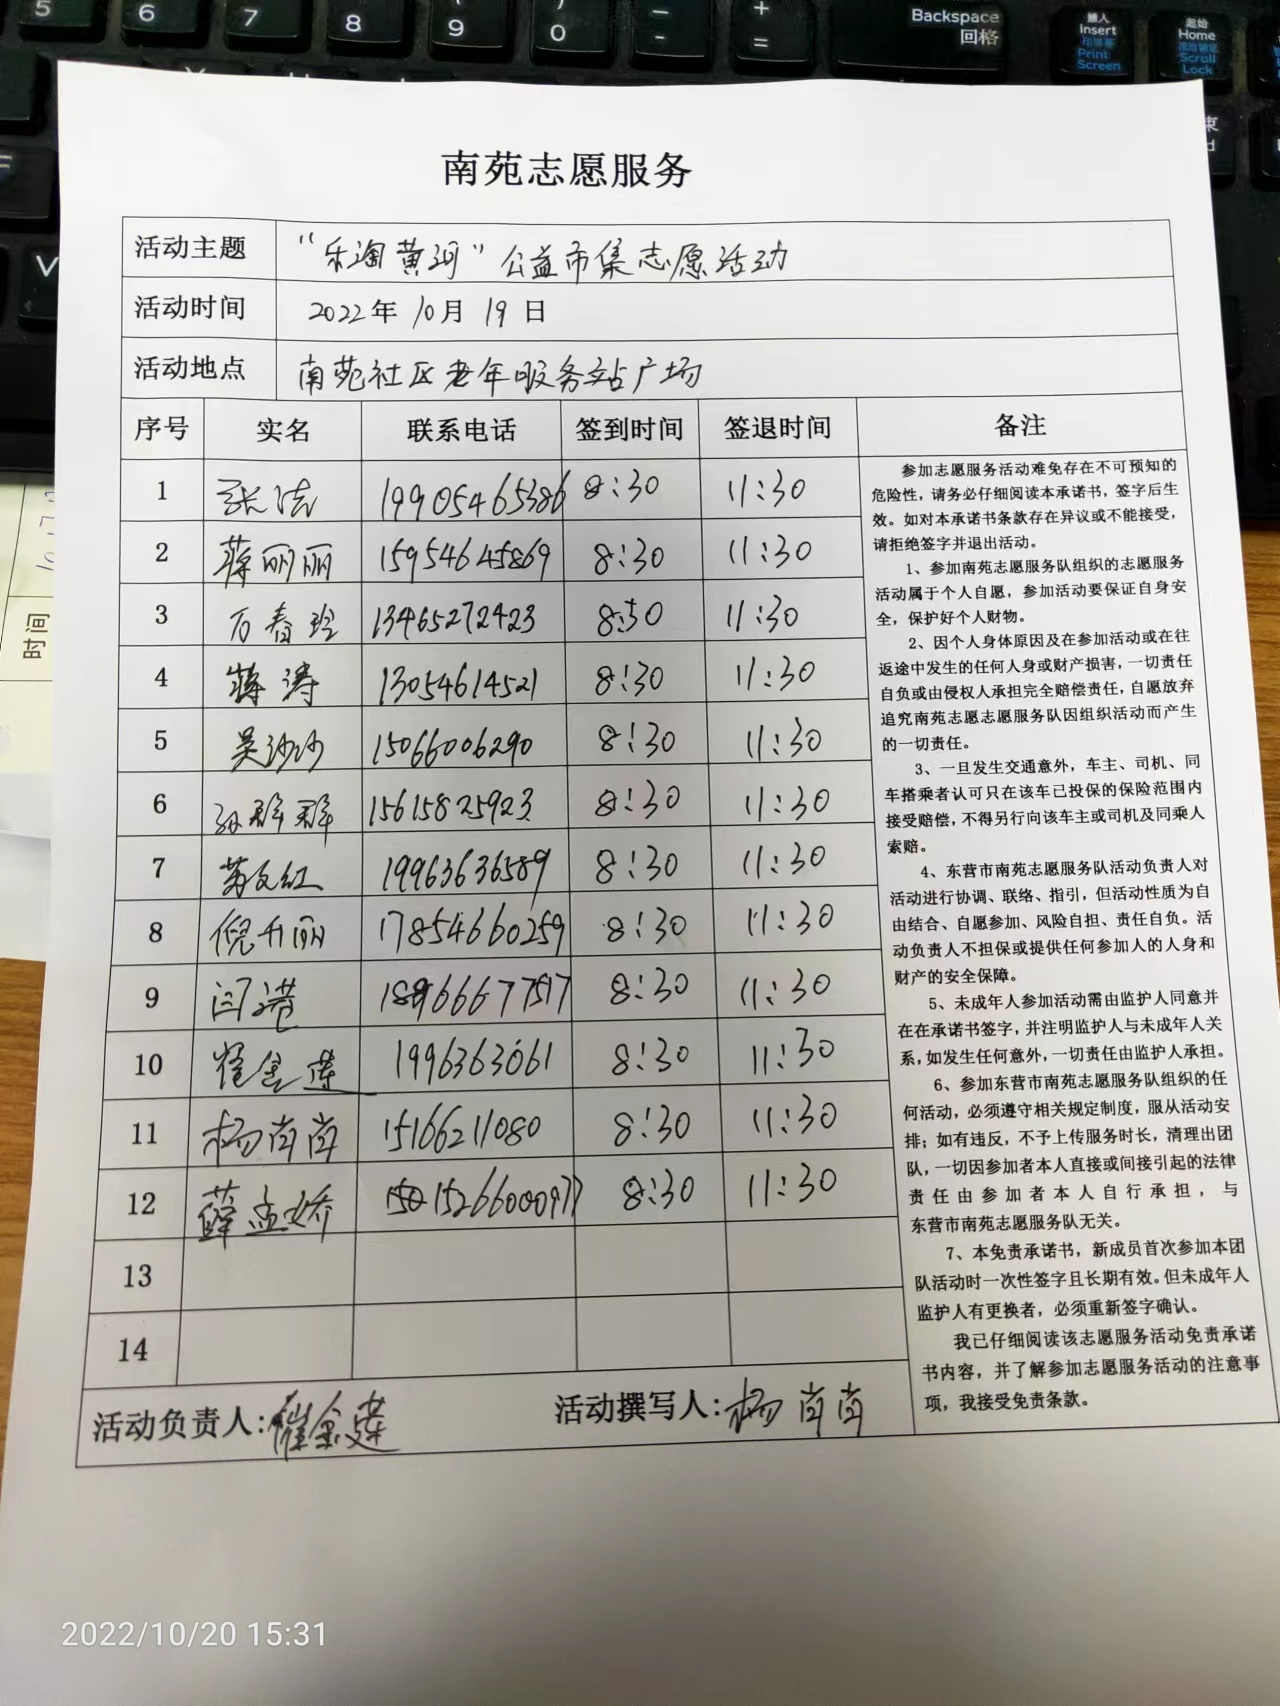 5 6 7 8 9 0 - + =
Backspace 回格
插入 Insert 印屏幕 Print Screen
起始 Home 滚动锁定 Scroll Lock
时间
南苑志愿服务
活动主题 “乐淘黄河”公益市集志愿活动
活动时间 2022年 10月 19日
活动地点 南苑社区老年服务站广场
序号 实名 联系电话 签到时间 签退时间 备注
1 张洁 19905465386 8:30 11:30
2 蒋丽丽 15954645869 8:30 11:30
3 万春玲 13465272423 8:30 11:30
4 蒋涛 13054614521 8:30 11:30
5 吴沙沙 15066006290 8:30 11:30
6 孙群群 15615825923 8:30 11:30
7 红 19963636589 8:30 11:30
8 倪丽 17854660259 8:30 11:30
9 闫港 8:30 11:30
10 崔金莲 1996363061 8:30 11:30
11 杨苗苗 15166211080 8:30 11:30
12 薛孟娇 15266000977 8:30 11:30
13
14
活动负责人:崔金莲 活动撰写人:杨苗苗
参加志愿服务活动难免存在不可预知的
危险性，请务必仔细阅读本承诺书，签字后生
效。如对本承诺书条款存在异议或不能接受，
请拒绝签字并退出活动。
1、参加南苑志愿服务队组织的志愿服务
活动属于个人自愿，参加活动要保证自身安
全，保护好个人财物。
2、因个人身体原因及在参加活动或在往
返途中发生的任何人身或财产损害，一切责任
自负或由侵权人承担完全赔偿责任，自愿放弃
追究南苑志愿志愿服务队因组织活动而产生
的一切责任。
3、一旦发生交通意外，车主、司机、同
车搭乘者认可只在该车已投保的保险范围内
接受赔偿，不得另行向该车主或司机及同乘人
索赔。
4、东营市南苑志愿服务队活动负责人对
活动进行协调、联络、指引，但活动性质为自
由结合、自愿参加、风险自担、责任自负。活
动负责人不担保或提供任何参加人的人身和
财产的安全保障。
5、未成年人参加活动需由监护人同意并
在在承诺书签字，并注明监护人与未成年人关
系，如发生任何意外，一切责任由监护人承担。
6、参加东营市南苑志愿服务队组织的任
何活动，必须遵守相关规定制度，服从活动安
排；如有违反，不予上传服务时长，清理出团
队，一切因参加者本人直接或间接引起的法律
责任由参加者本人自行承担，与
东营市南苑志愿服务队无关。
7、本免责承诺书，新成员首次参加本团
队活动时一次性签字且长期有效。但未成年人
监护人有更换者，必须重新签字确认。
我已仔细阅读该志愿服务活动免责承诺
书内容，并了解参加志愿服务活动的注意事
项，我接受免责条款。
2022/10/20 15:31